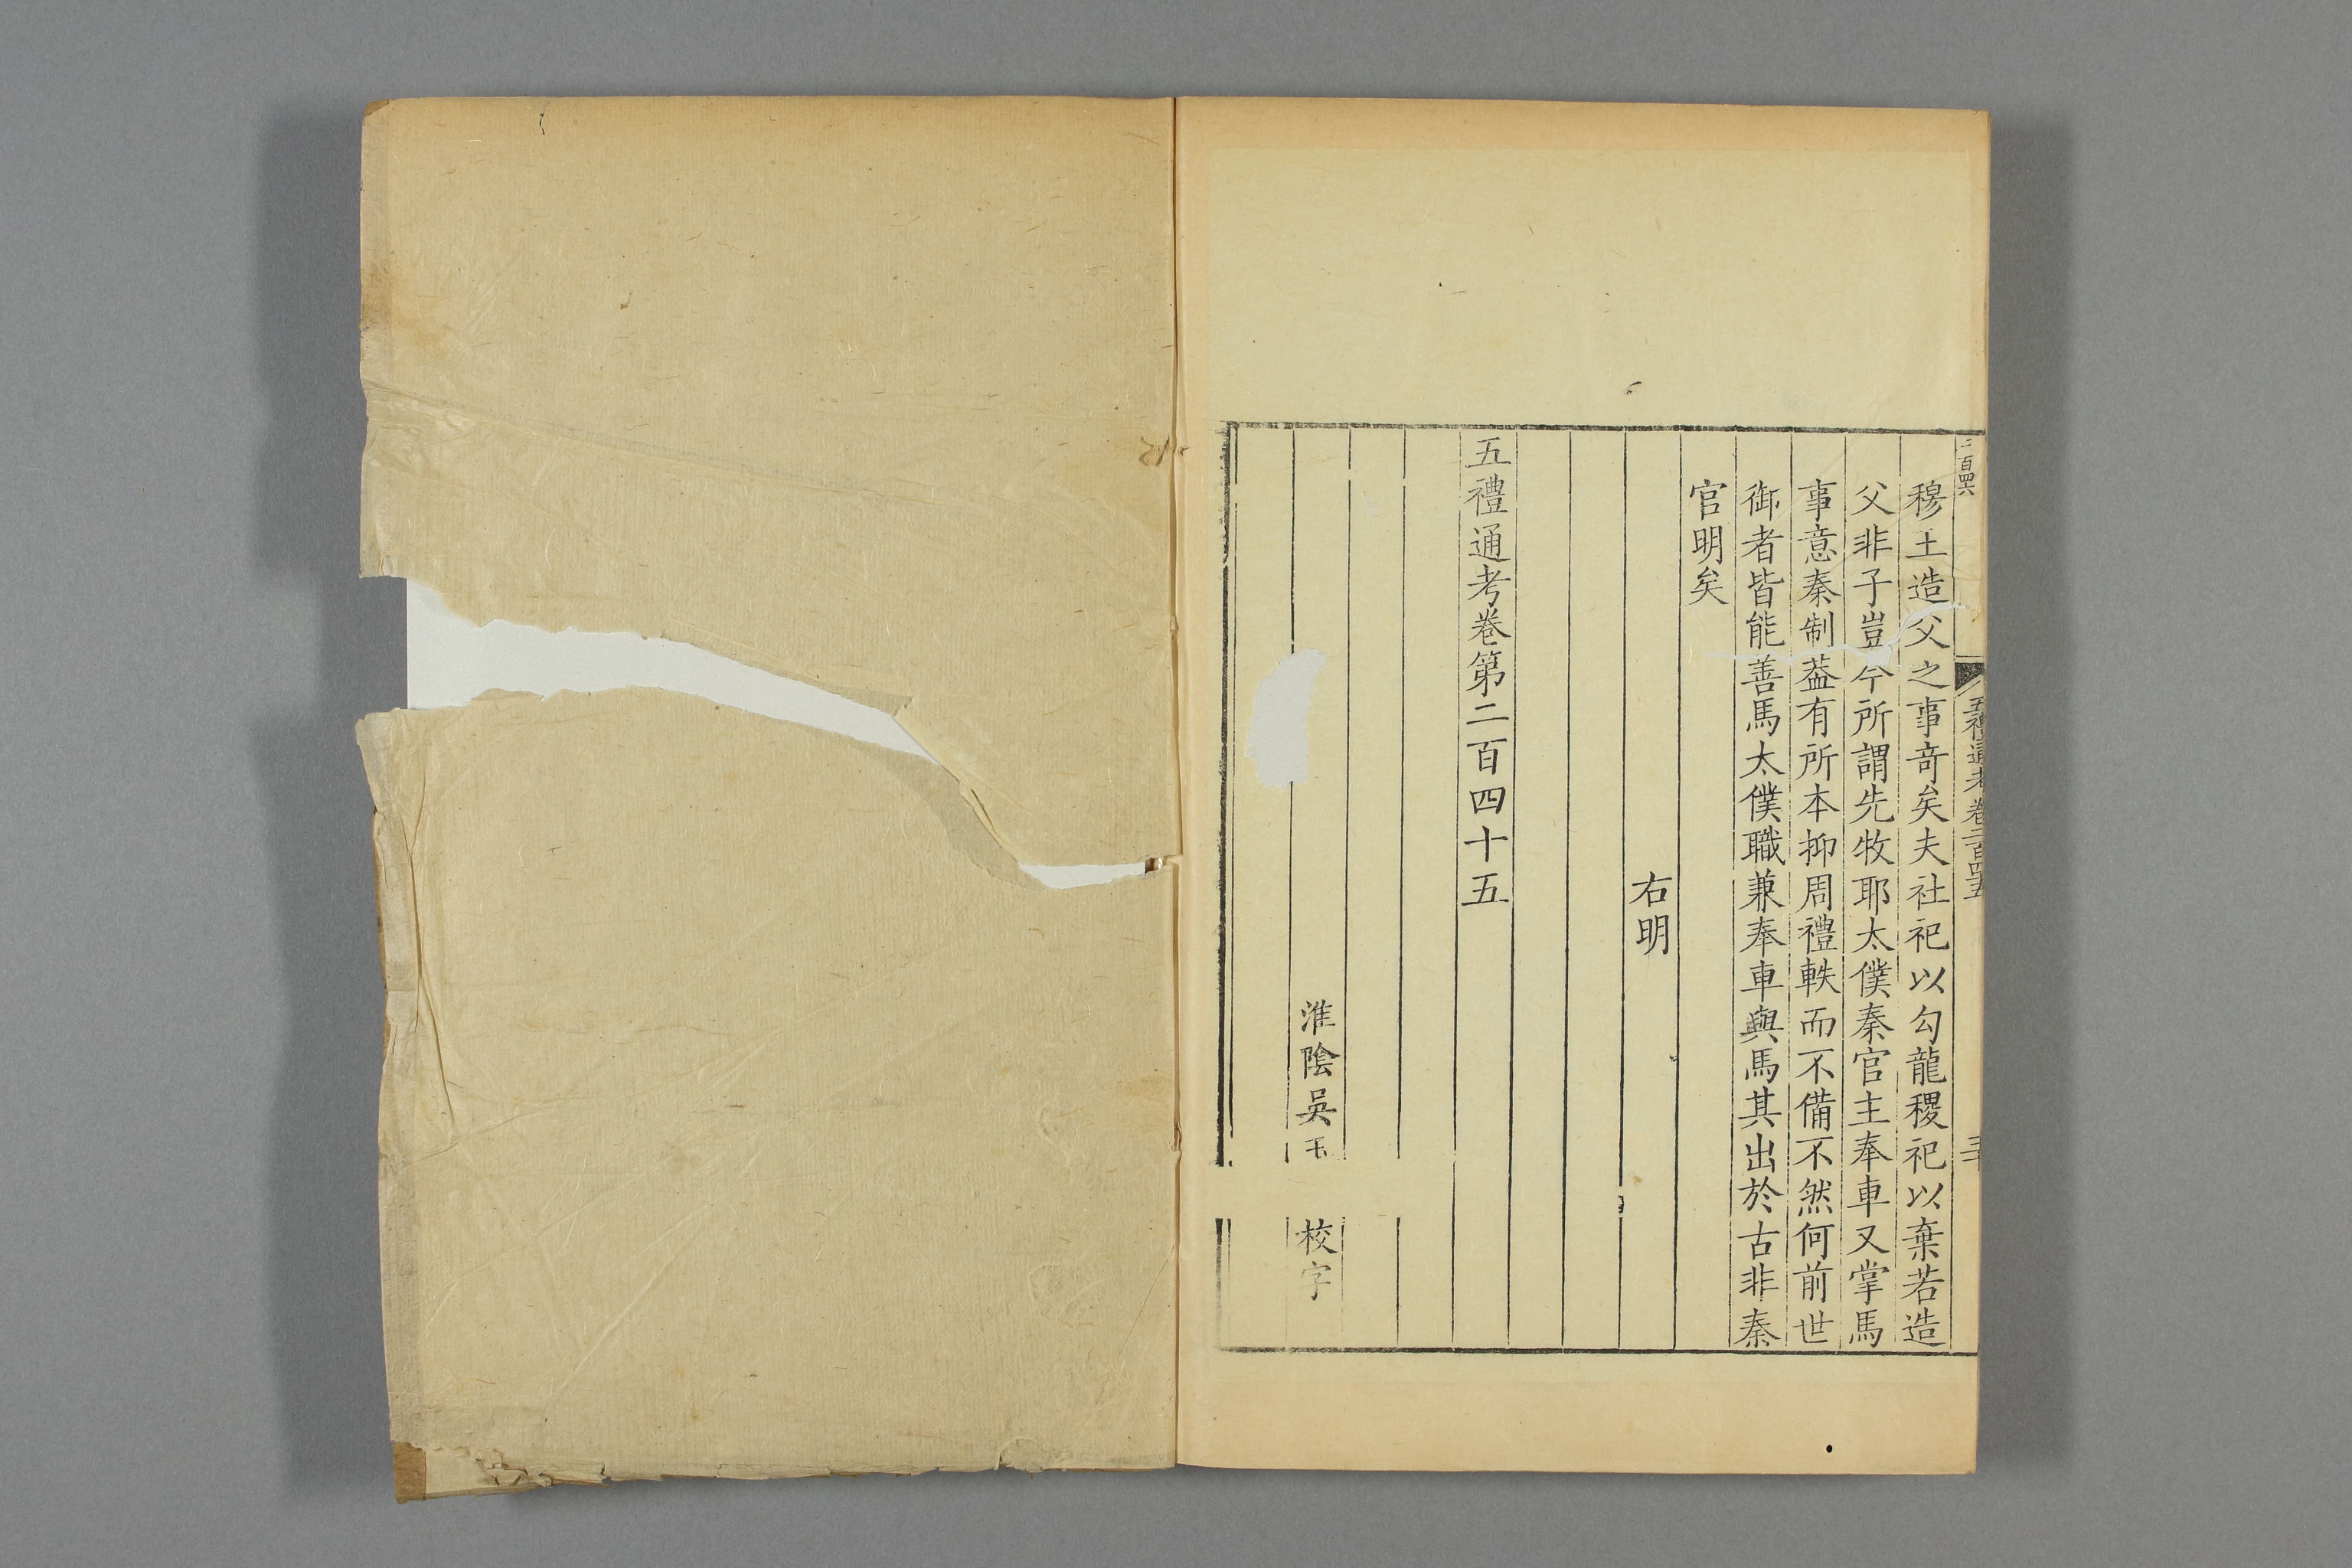 二百四六
五禮通考卷二百四五
三十
穆王造父之事奇矣夫社祀以勾龍稷祀以棄若造
父非子豈今所謂先牧耶太僕秦官主奉車又掌馬
事意秦制葢有所本抑周禮軼而不備不然何前世
御者皆能善馬太僕職兼奉車與馬其出於古非秦
官明矣
右明
五禮通考卷第二百四十五
淮陰吳玉 校字